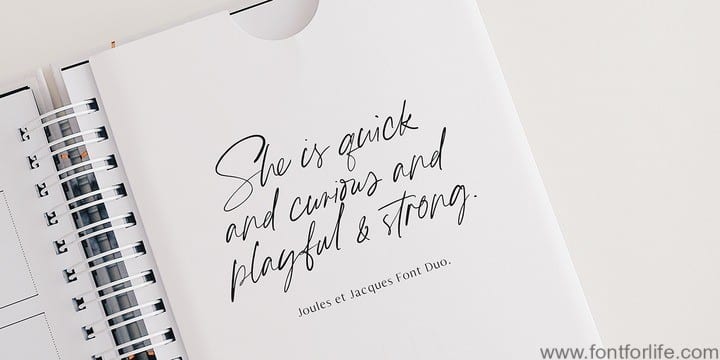 She is quick
and curious and
playful & strong.
Joules et Jacques Font Duo.
www.fontforlife.com